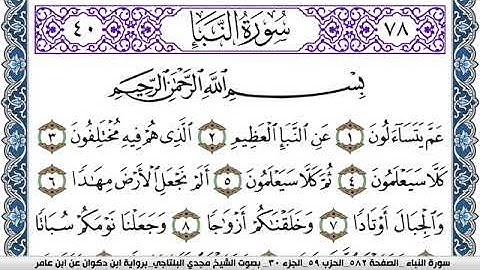 ٧٨ سُورَةُ النَّبَإِ ٤٠
بِسْمِ ٱللَّهِ ٱلرَّحْمَٰنِ ٱلرَّحِيمِ
عَمَّ يَتَسَآءَلُونَ ١ عَنِ ٱلنَّبَإِ ٱلْعَظِيمِ ٢ ٱلَّذِى هُمْ فِيهِ مُخْتَلِفُونَ ٣
كَلَّا سَيَعْلَمُونَ ٤ ثُمَّ كَلَّا سَيَعْلَمُونَ ٥ أَلَمْ نَجْعَلِ ٱلْأَرْضَ مِهَٰدًا ٦
وَٱلْجِبَالَ أَوْتَادًا ٧ وَخَلَقْنَٰكُمْ أَزْوَٰجًا ٨ وَجَعَلْنَا نَوْمَكُمْ سُبَاتًا
سورة النباء _الصفحة ٥٨٢_الحزب ٥٩ _الجزء ٣٠_ بصوت الشيخ مجدي البلتاجي_برواية ابن دكوان عن ابن عامر